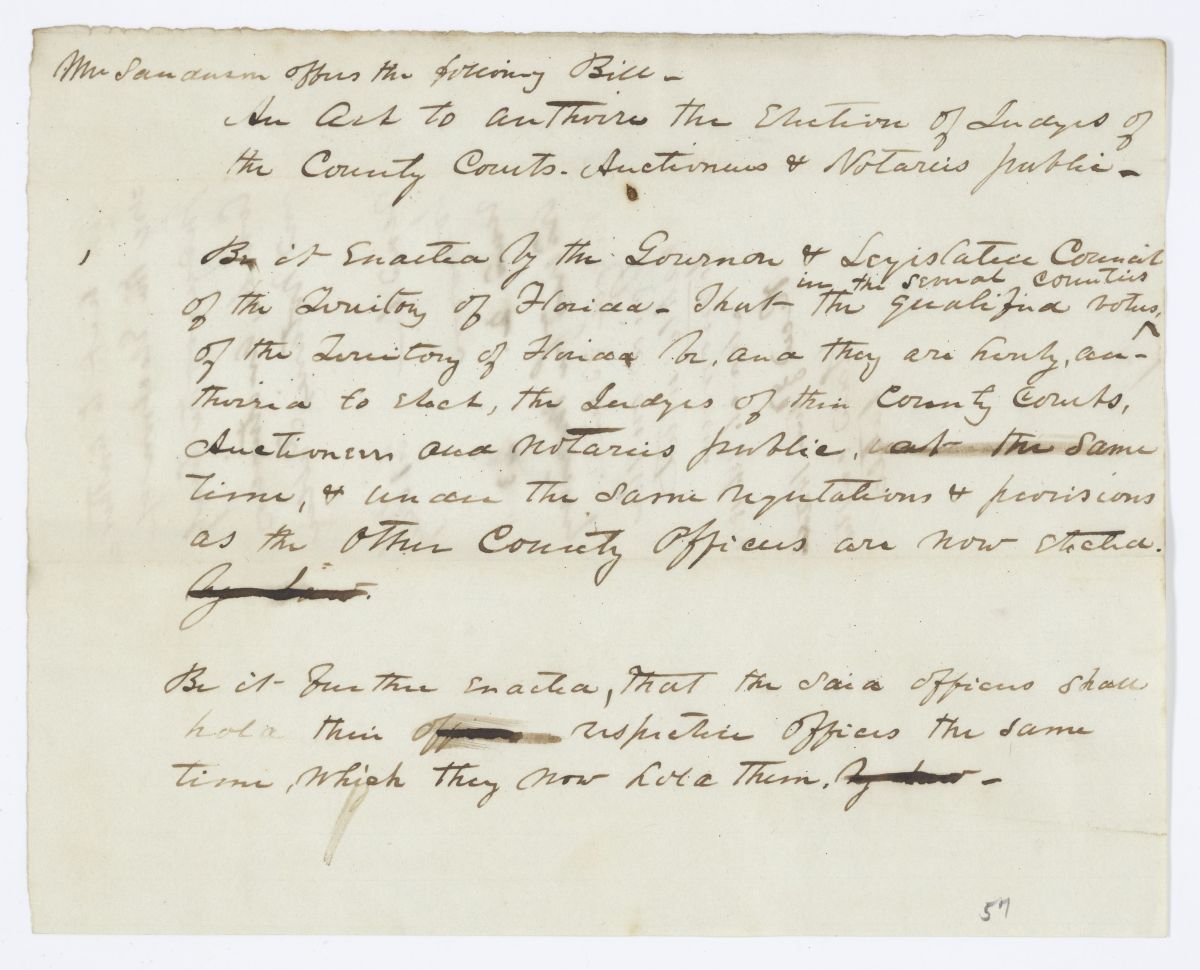 Mr Sanderson offers the following Bill -
An Act to authorize the Election of Judges of
the County Courts. Auctioneers & Notaries public -
1 Be it Enacted by the Governor & Legislative Council
in the several counties
of the Territory of Florida - That the qualified voters,
of the Territory of Florida be, and they are hereby, au-
thorized to elect, the Judges of their County Courts,
Auctioneers and Notaries public, at the same
time, & under the same regulations & provisions
as the other County Officers are now elected.
by law.
Be it further enacted, That the said officers shall
hold their offices respective offices the same
time, which they now hold them. by law -
57